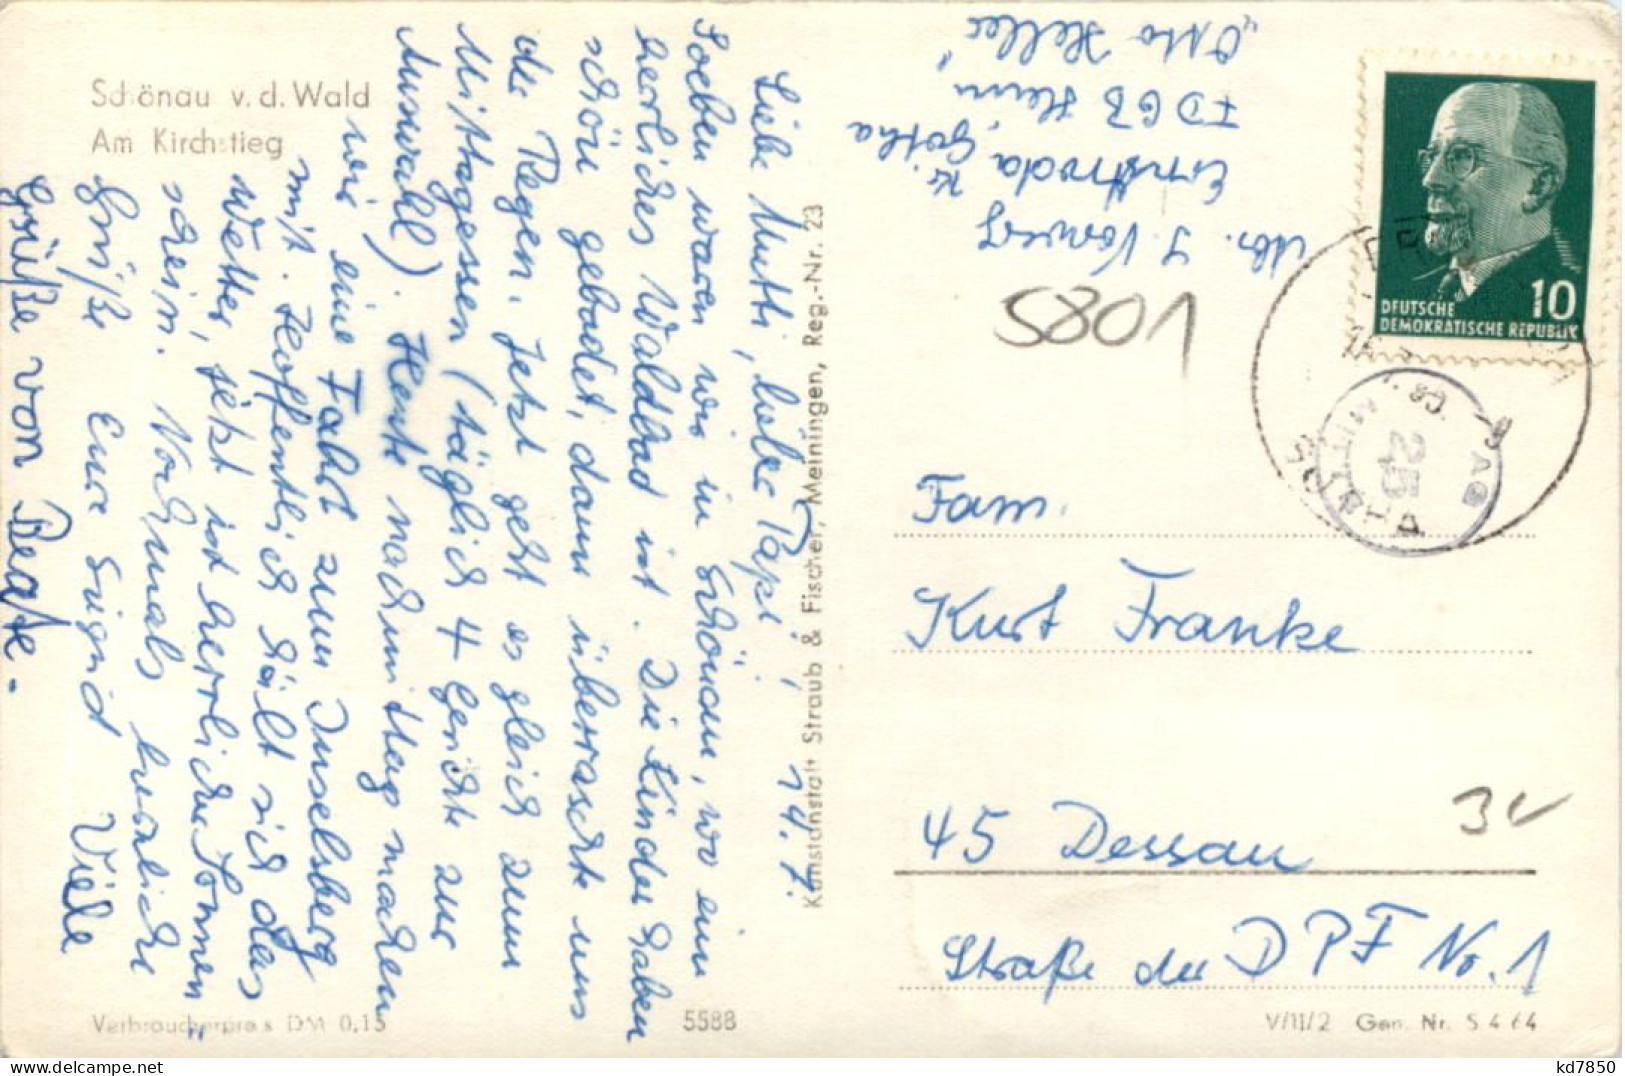 Schönau v. d. Wald
Am Kirchstieg
Liebe Mutti, lieber Papi, 14. 7.
Soeben waren wir in Schönau, wo ein
herrliches Waldbad ist. Die Kinder haben
schön gebadet, dann überraschte uns
der Regen. Jetzt geht es gleich zum
Mittagessen (täglich 4 Gerichte zur
Auswahl). Heute nachmittag machen
wir eine Fahrt zum Inselsberg
mit. Hoffentlich hält sich das
Wetter, jetzt ist herrlicher Sonnen-
schein. Nochmals herzliche
Grüße Eure Sigrid Viele
Grüße von Beate.-
Kunstanstalt Straub & Fischer, Meiningen, Reg.-Nr. 23
Abs. J. Vorwerg
Ernstroda
Kr. Gotha
FDGB Heim
„Otto Heller"
5801
DEUTSCHE
DEMOKRATISCHE REPUBLIK
10
GOTHA
25
Fam.
Kurt Franke
45 Dessau
Straße der DPF No. 1
Verbraucherpreis DM 0,15
5588
V/11/2 Gen. Nr. S 4 64
kd7850